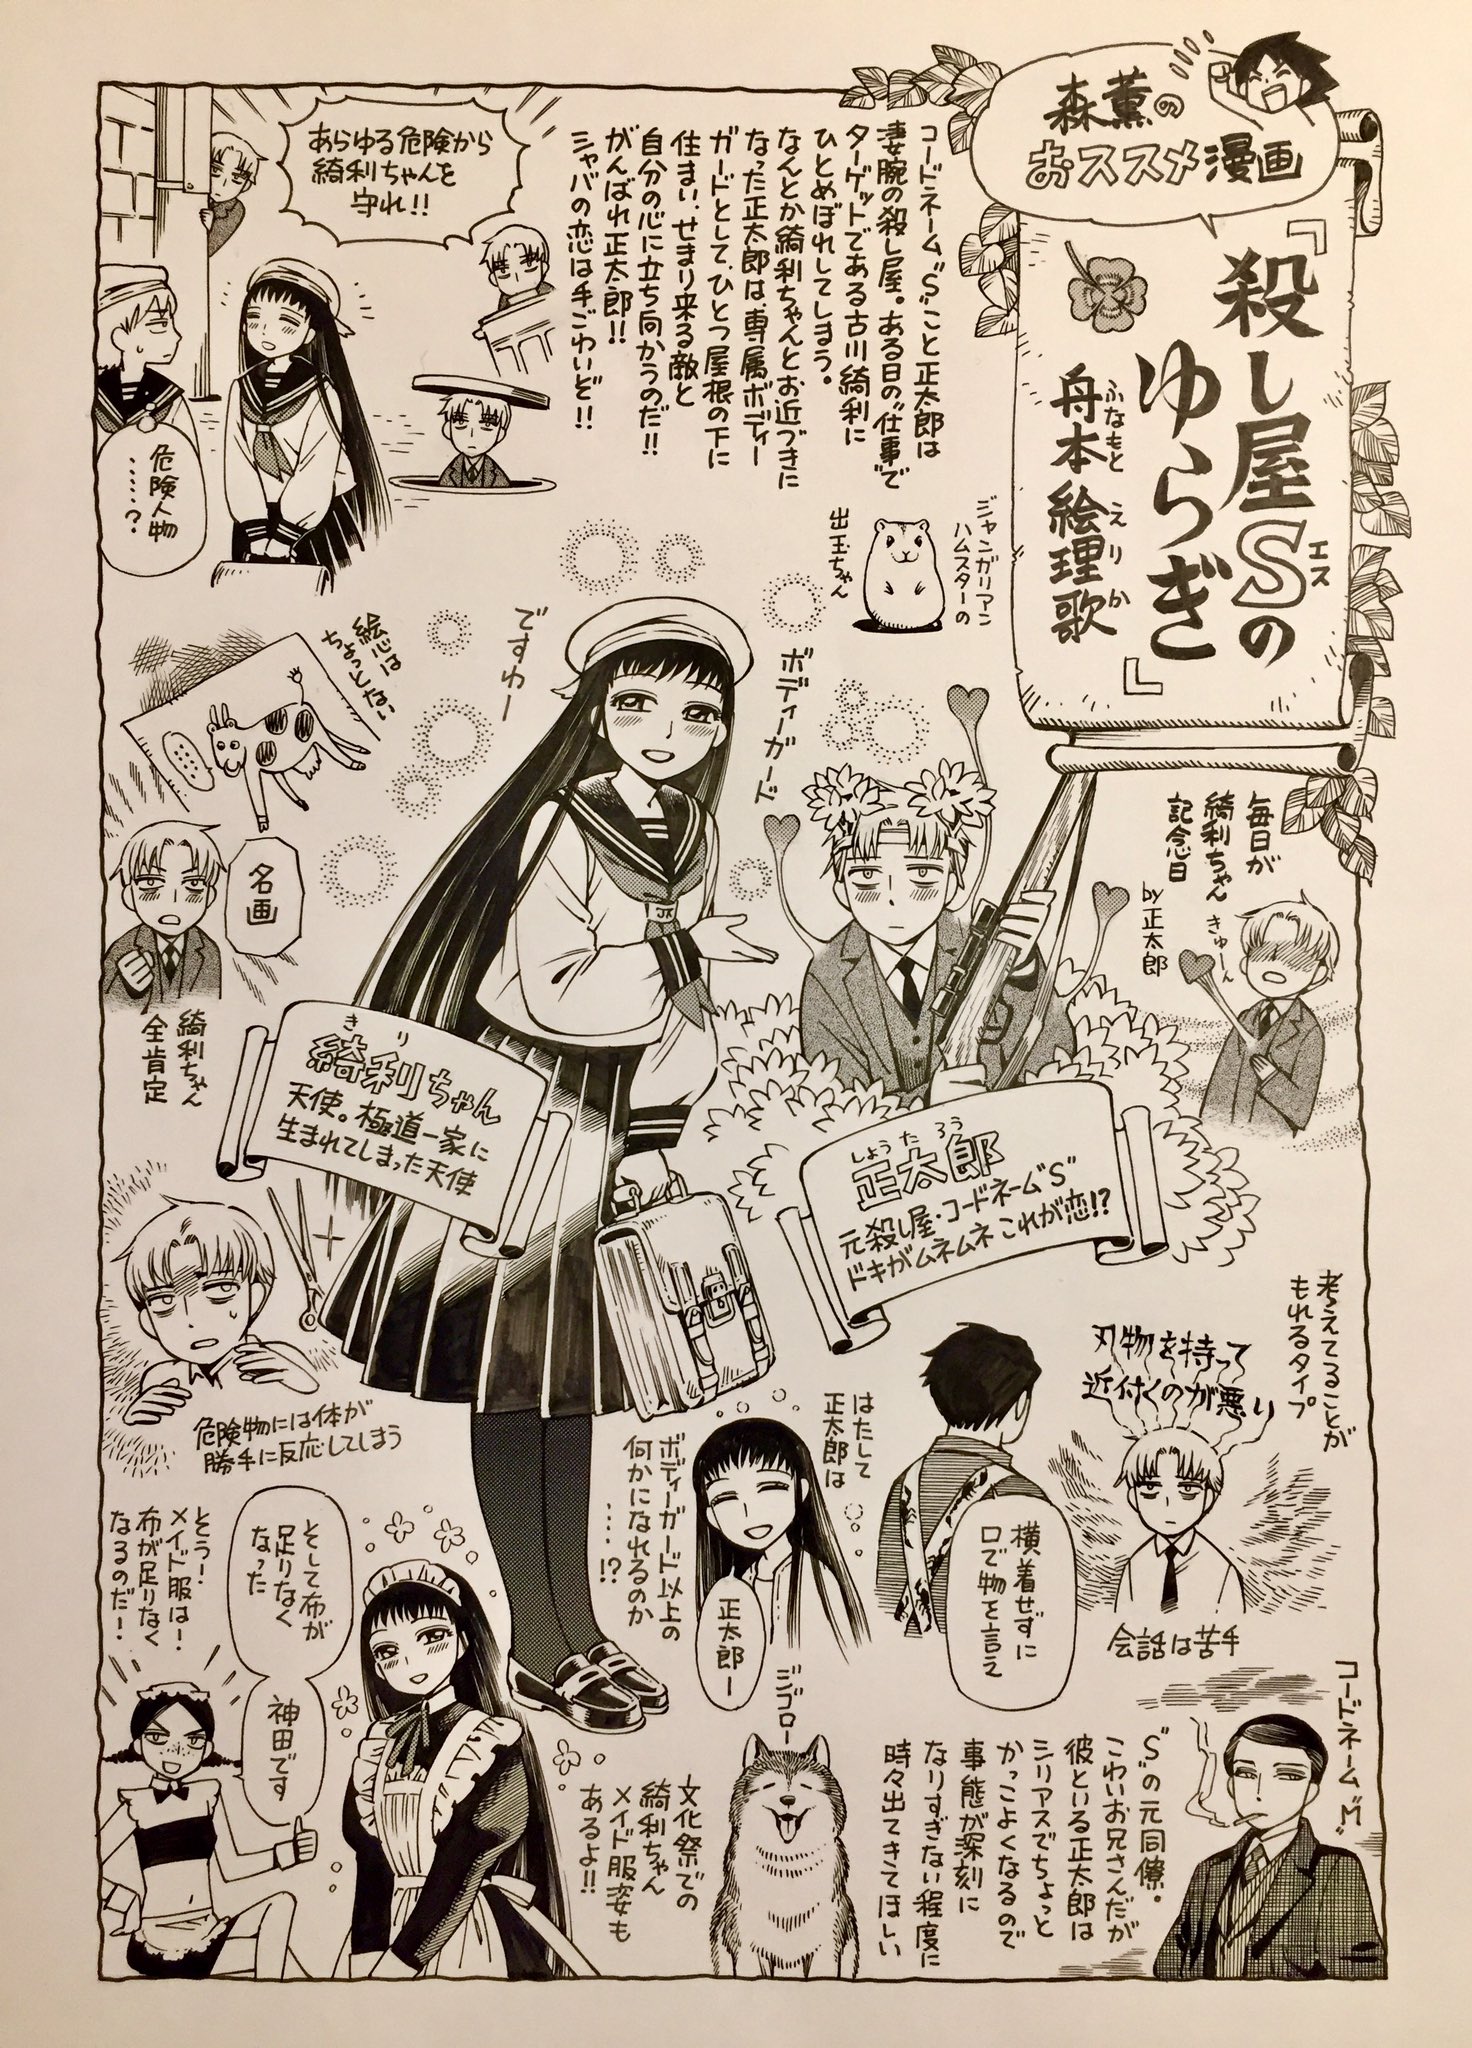 森薫の
おススメ漫画
『殺し屋Sの
エス
ゆらぎ』
舟本絵理歌
ふなもと えりか
コードネーム"S"こと正太郎は
凄腕の殺し屋。ある日の"仕事"で
ターゲットである古川綺利に
ひとめぼれしてしまう。
なんとか綺利ちゃんとお近づきに
なった正太郎は、専属ボディー
ガードとして、ひとつ屋根の下に
住まい、せまり来る敵と
自分の心に立ち向かうのだ!!
がんばれ正太郎!!
シャバの恋は手ごわいど!!
あらゆる危険から
綺利ちゃんを
守れ!!
危険人物
……?
ジャンガリアン
ハムスターの
出玉ちゃん
毎日が
綺利ちゃん
記念日
by正太郎
きゅーん
ボディーガード
ですわー
JK
絵心は
ちょっとない
名画
綺利ちゃん
全肯定
正太郎
しょうたろう
元殺し屋・コードネーム"S"
ドキがムネムネこれが恋!?
綺利ちゃん
きり
天使。極道一家に
生まれてしまった天使
危険物には体が
勝手に反応してしまう
考えてることが
もれるタイプ
刃物を持って
近付くのが悪い
会話は苦手
横着せずに
口で物を言え
はたして
正太郎は
ボディーガード以上の
何かになれるのか
……!?
正太郎ー
コードネーム"M"
"S"の元同僚。
こわいお兄さんだが
彼といる正太郎は
シリアスでちょっと
かっこよくなるので
事態が深刻に
なりすぎない程度に
時々出てきてほしい
ジゴロー
文化祭での
綺利ちゃん
メイド服姿も
あるよ!!
そして布が
足りなく
なった
神田です
とう!
メイド服は!
布が足りなく
なるのだ!